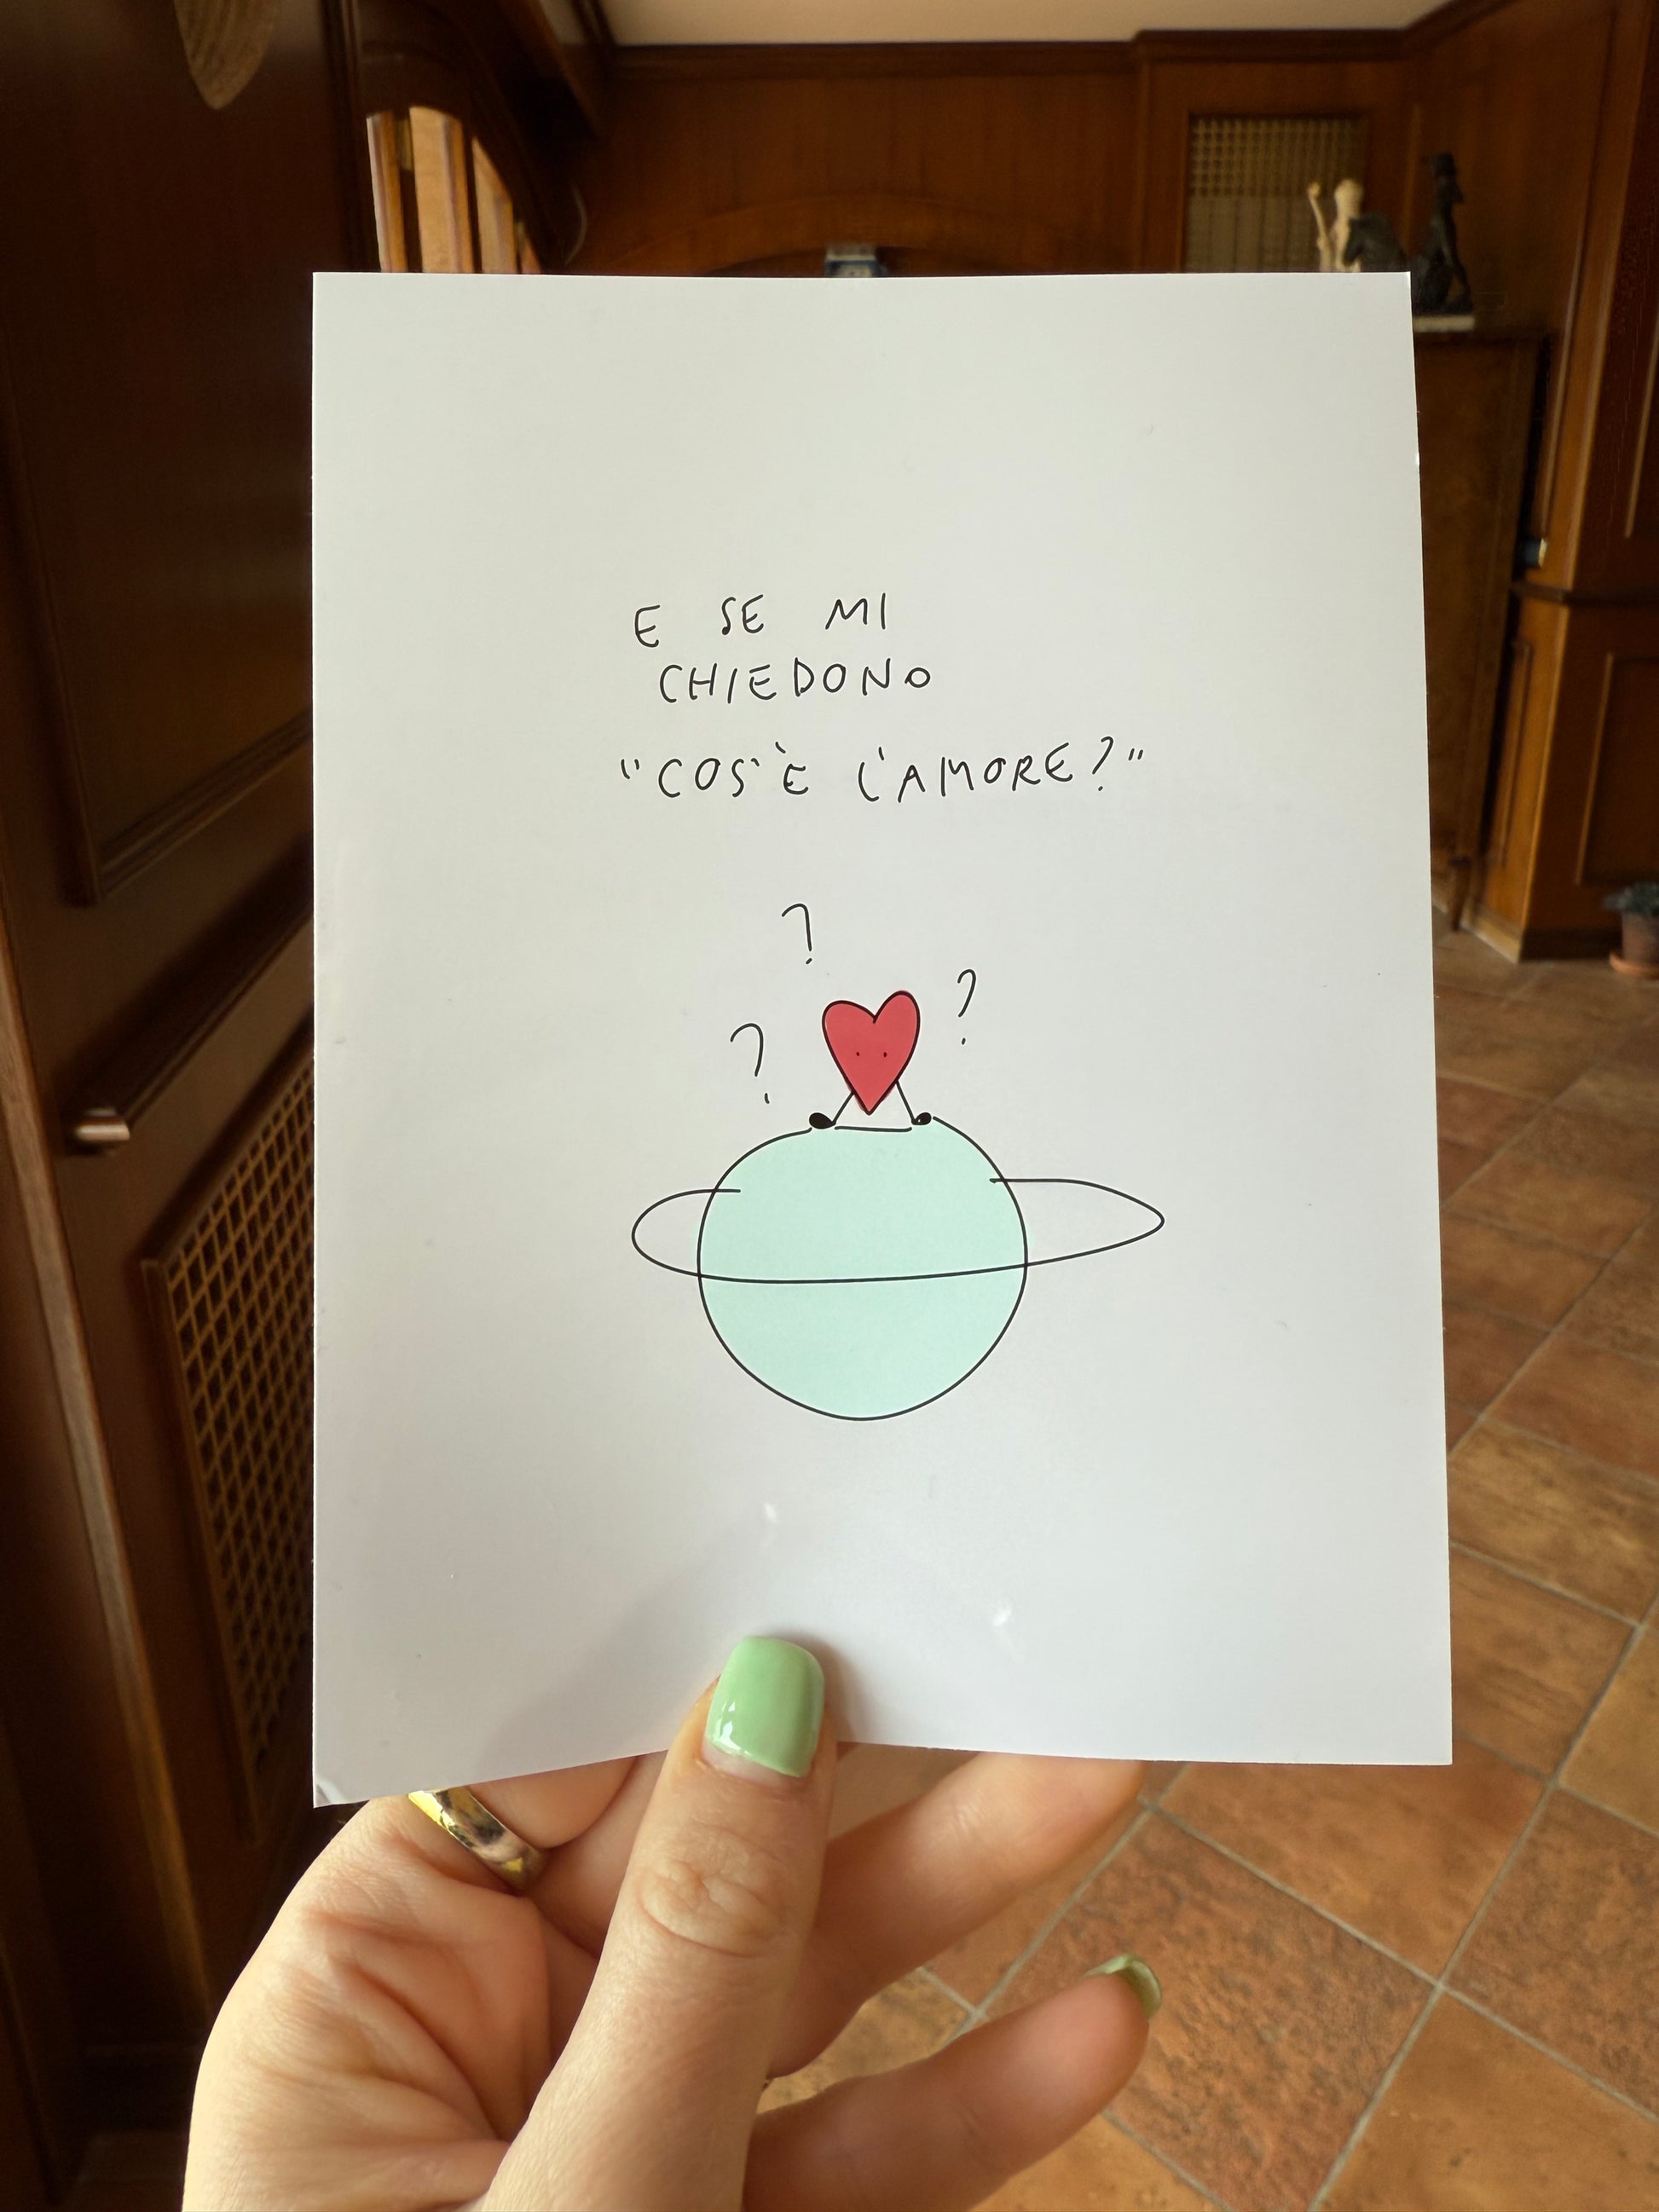 E SE MI
CHIEDONO
"COS'È L'AMORE?"
?
?
?